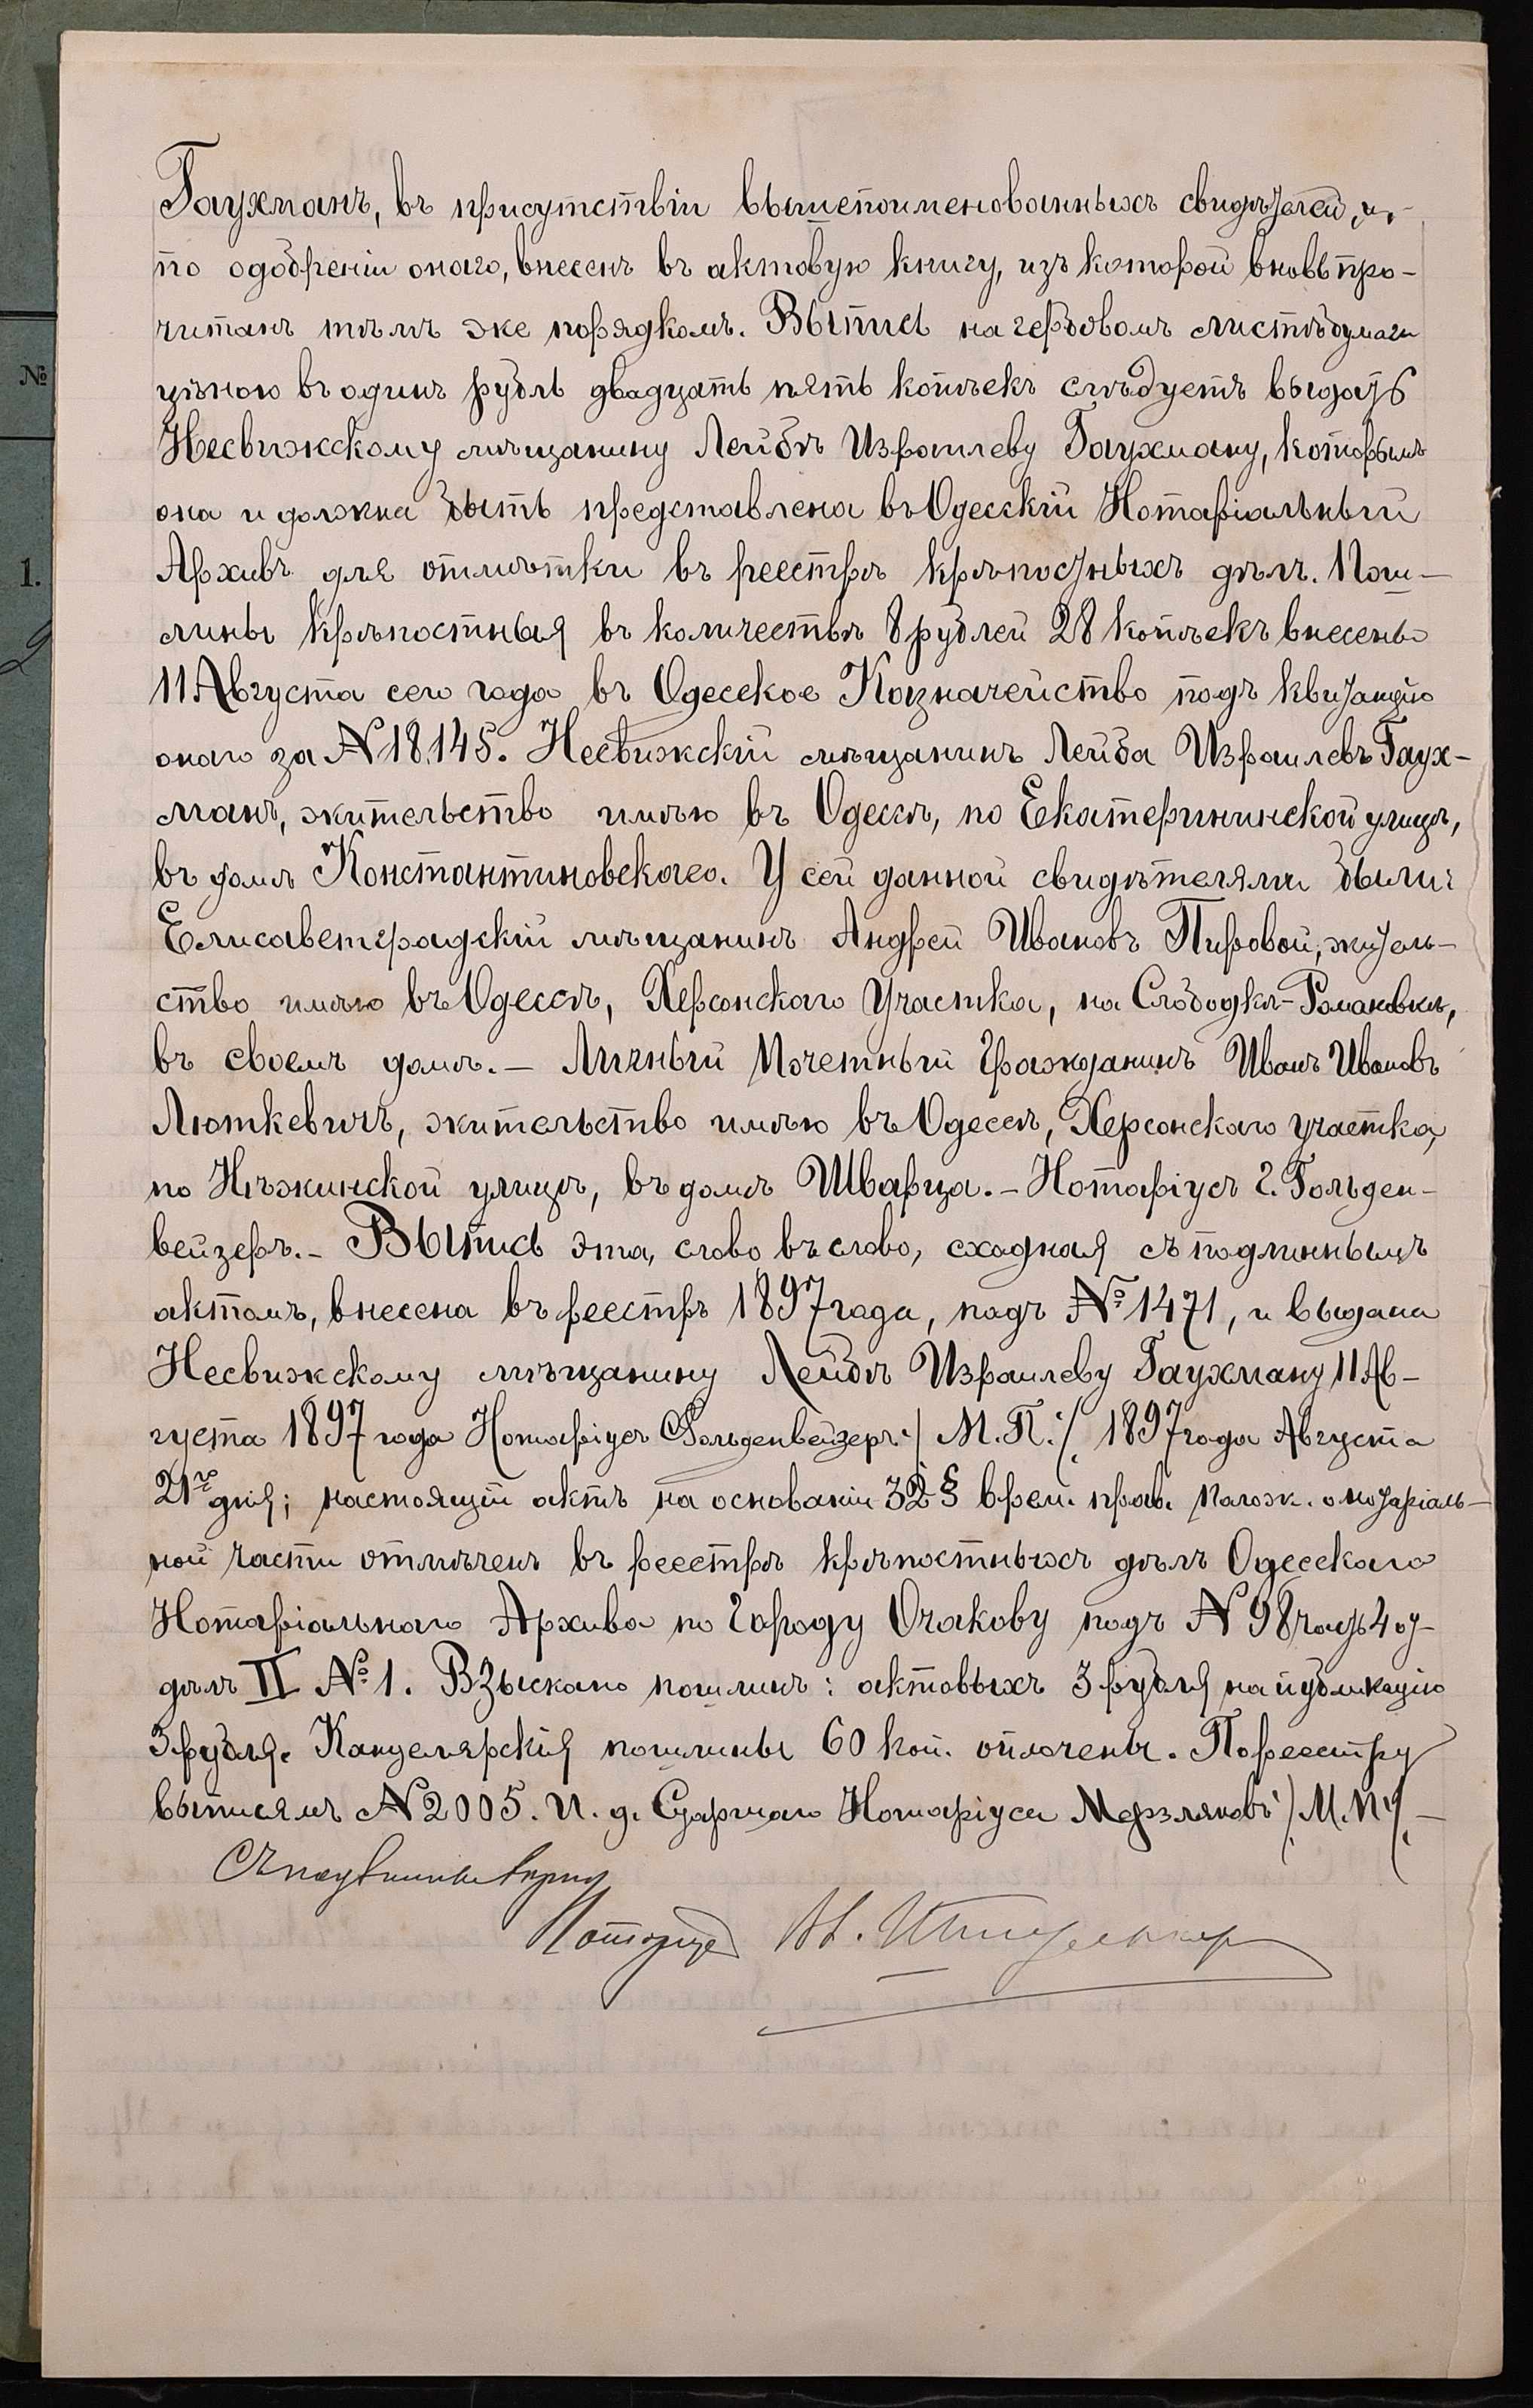 Гаухманъ, въ присутствіи вышепоименованныхъ свидѣтелей, и,
по одобреніи онаго, внесенъ въ актовую книгу, изъ которой вновь про-
читанъ тѣмъ же порядкомъ. Выпись на гербовомъ листѣ бумаги
цѣною въ одинъ рубль двадцать пять копѣекъ слѣдуетъ выдать
Несвижскому мѣщанину Лейбѣ Израилеву Гаухману, которымъ
она и должна быть представлена въ Одесскій Нотаріальный
Архивъ для отмѣтки въ реестрѣ крѣпостныхъ дѣлъ. Пош-
лины крѣпостныя въ количествѣ 8 рублей 28 копѣекъ внесены
11 Августа сего года въ Одесское Казначейство подъ квитанцію
онаго за № 18.145. Несвижскій мѣщанинъ Лейба Израилевъ Гаух-
манъ, жительство имѣю въ Одессѣ, по Екатерининской улицѣ,
въ домѣ Константиновскаго. У сей данной свидѣтелями были:
Елисаветградскій мѣщанинъ Андрей Ивановъ Пировой, житель-
ство имѣю въ Одессѣ, Херсонскаго Участка, на Слободкѣ-Романовкѣ,
въ своемъ домѣ. - Личный Почетный Гражданинъ Иванъ Ивановъ
Люткевичъ, жительство имѣю въ Одессѣ, Херсонскаго участка,
по Нѣжинской улицѣ, въ домѣ Шварца. - Нотаріусъ Г. Гольден-
вейзеръ. - Выпись эта, слово въ слово, сходная съ подлиннымъ
актомъ, внесена въ реестръ 1897 года, подъ № 1471, и выдана
Несвижскому мѣщанину Лейбѣ Израилеву Гаухману 11 Ав-
густа 1897 года Нотаріусъ Гольденвейзеръ /М. П./ 1897 года Августа
21го дня; настоящій актъ на основаніи 32 § врем. прав. Полож. о нотаріаль-
ной части отмѣченъ въ реестрѣ крѣпостныхъ дѣлъ Одесскаго
Нотаріальнаго Архива по городу Очакову подъ № 98 часть 4 от-
дѣлъ II № 1. Взыскано пошлинъ: актовыхъ 3 рубля на публикацію
3 рубля. Канцелярскія пошлины 60 коп. оплочены. По реестру
выписямъ № 2005. И. д. Старшаго Нотаріуса Мерзляковъ /М. П./ -
Съ подлиннымъ вѣрно
Нотаріусъ